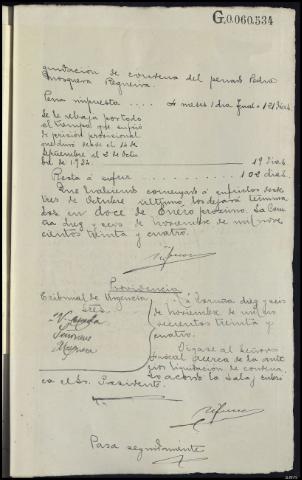 G.0.060.534
quidacion de condena del penado Pedro
Mosquera Regueira.
Pena impuesta .... 4 meses 1 dia igual a 121 dias
Se le rebaja por todo
el tiempo que sufrió
de prisión provisional
desde el 14 de
Septiembre el 2 de Octu
bre de 1934 19 dias
Resta á sufrir 102 dias
Que habiendo comenzado á sufrirlos desde
tres de Octubre último, los dejará termina
dos en doce de Enero proximo. La Coru
ña diez y seis de noviembre de mil nove
cientos treinta y cuatro.
Providencia
Tribunal de Urgencia
Sres.
La Coruña diez y seis
de noviembre de mil no
vecientos treinta y
cuatro.
Oigase al Señor
Fiscal acerca de la ante
rior liquidación de condena.
Lo acordó la Sala; rubri
ca el Sr. Presidente.
Pasa seguidamente